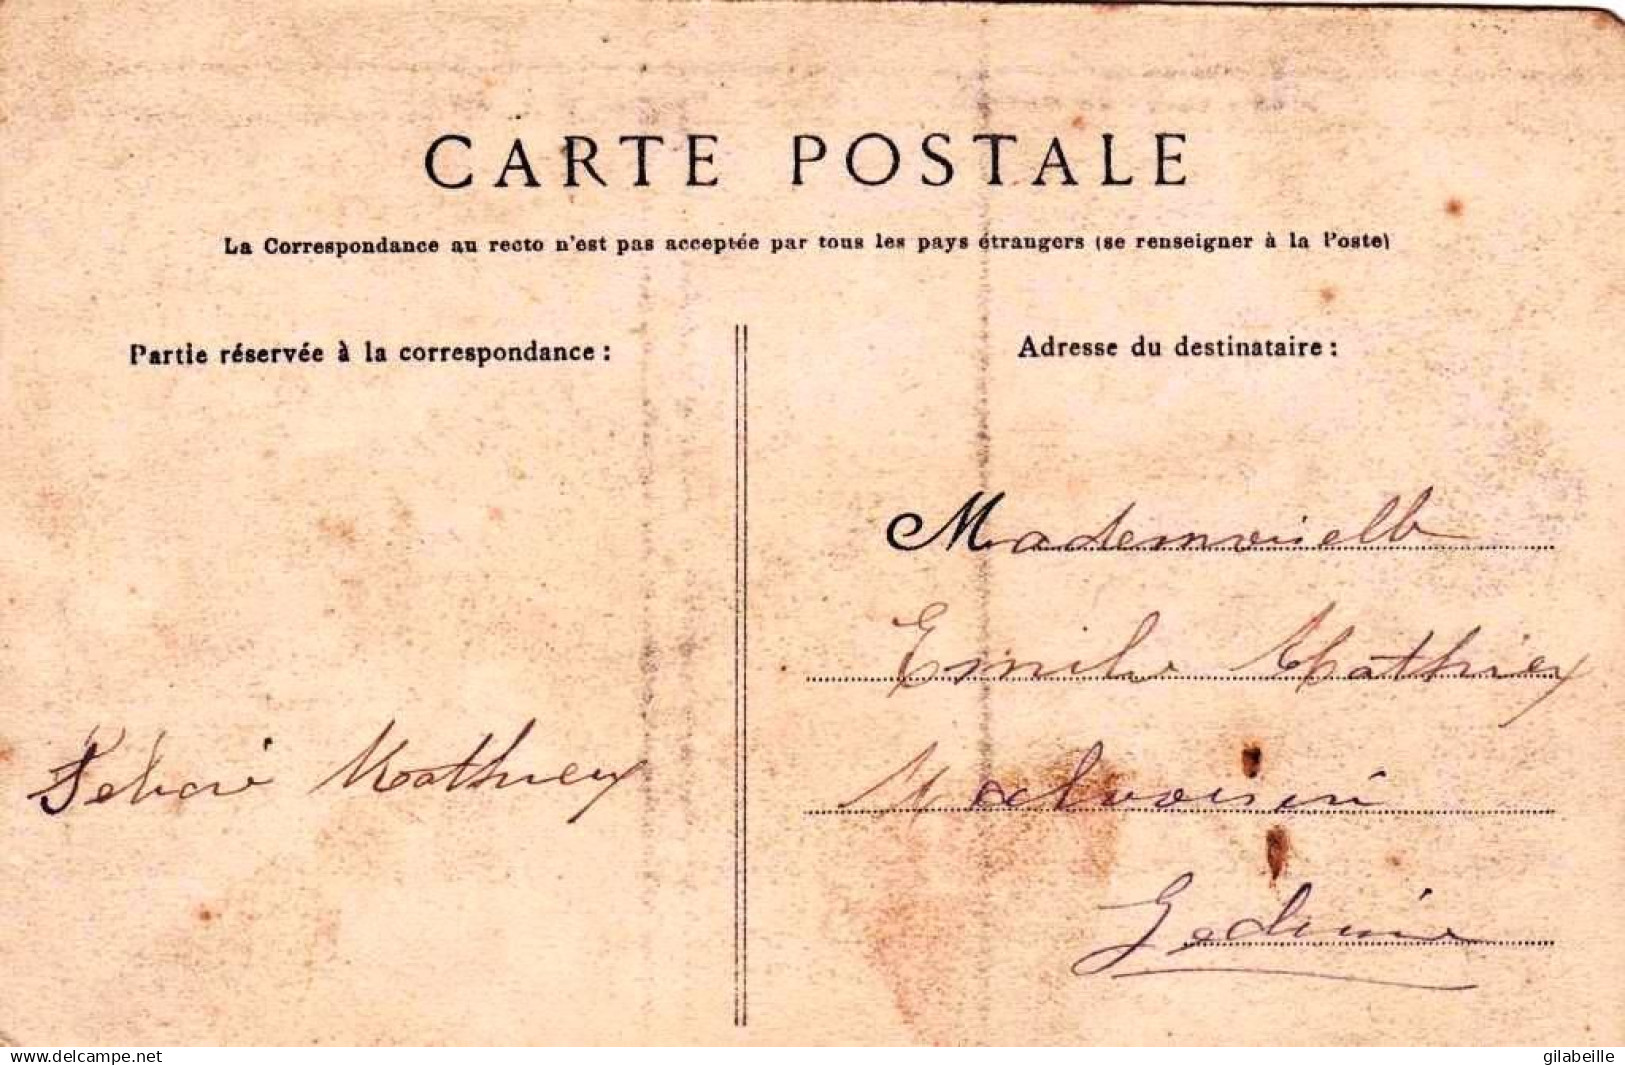 CARTE POSTALE
La Correspondance au recto n'est pas acceptée par tous les pays étrangers (se renseigner à la Poste)
Partie réservée à la correspondance :
Adresse du destinataire :
Mademoiselle
Emile Mathieu
Mathieu
Malvoisin
Gedinne
delcampe.net
gilabeille